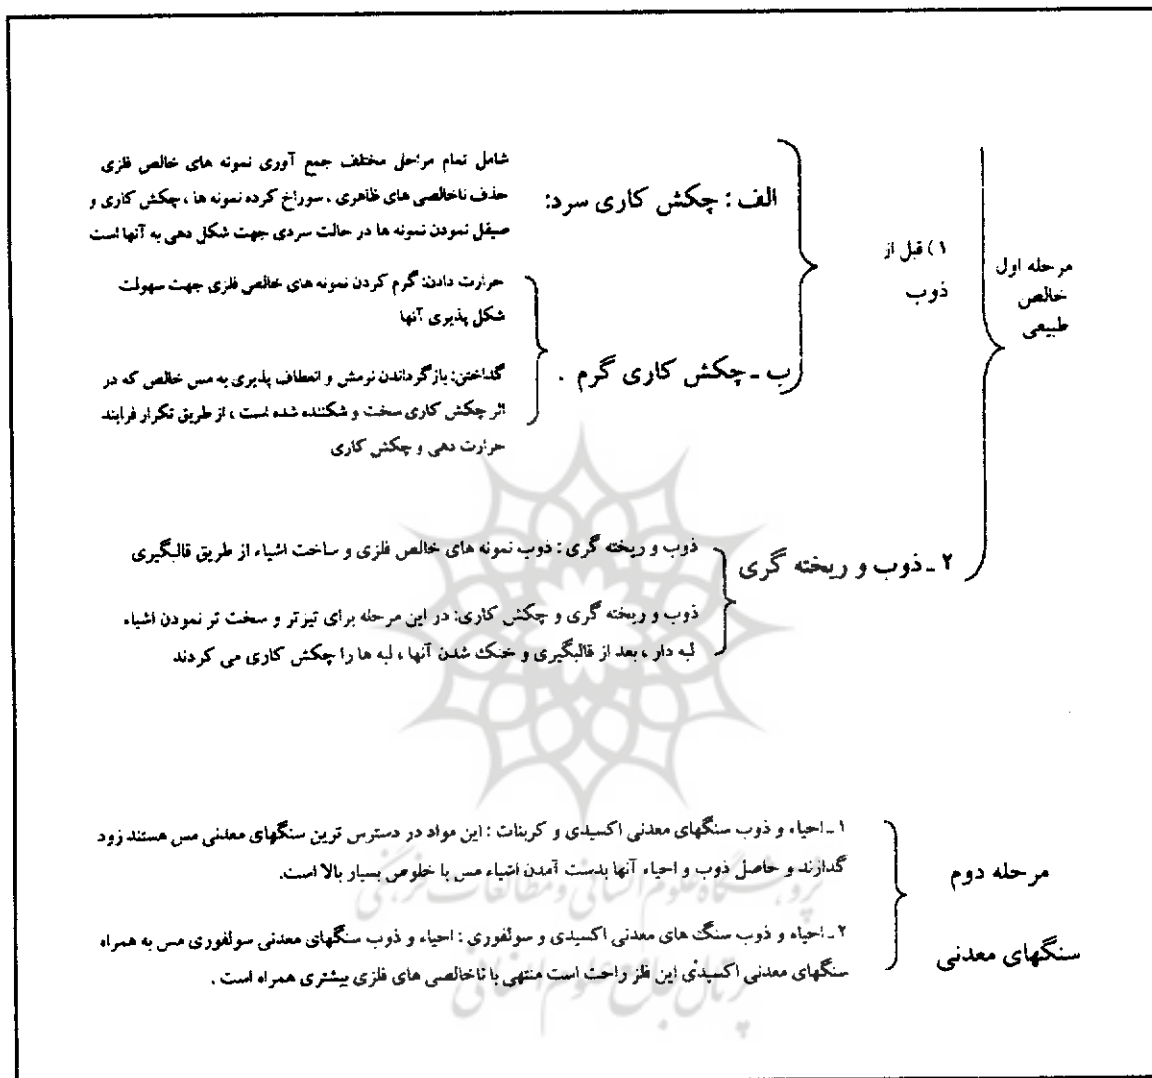 مرحله اول
خالص
طبیعی
۱) قبل از
ذوب
الف : چکش کاری سرد:
شامل تمام مراحل مختلف جمع آوری نمونه های خالص فلزی
حذف ناخالصی های ظاهری ، سوراخ کرده نمونه ها ، چکش کاری و
صیقل نمودن نمونه ها در حالت سردی جهت شکل دهی به آنها است
ب ـ چکش کاری گرم .
حرارت دادن: گرم کردن نمونه های خالص فلزی جهت سهولت
شکل پذیری آنها
گداختن: بازگرداندن نرمش و انعطاف پذیری به مس خالص که در
اثر چکش کاری سخت و شکننده شده است ، از طریق تکرار فرایند
حرارت دهی و چکش کاری
۲ ـ ذوب و ریخته گری
ذوب و ریخته گری : ذوب نمونه های خالص فلزی و ساخت اشیاء از طریق قالبگیری
ذوب و ریخته گری و چکش کاری: در این مرحله برای تیزتر و سخت تر نمودن اشیاء
لبه دار ، بعد از قالبگیری و خنک شدن آنها ، لبه ها را چکش کاری می کردند
مرحله دوم
سنگهای معدنی
۱ ـ احیاء و ذوب سنگهای معدنی اکسیدی و کربنات : این مواد در دسترس ترین سنگهای معدنی مس هستند زود
گدازند و حاصل ذوب و احیاء آنها بدست آمدن اشیاء مس با خلوص بسیار بالا است.
۲ ـ احیاء و ذوب سنگ های معدنی اکسیدی و سولفوری : احیاء و ذوب سنگهای معدنی سولفوری مس به همراه
سنگهای معدنی اکسیدی این فلز راحت است منتهی با ناخالصی های فلزی بیشتری همراه است .
پژوهشگاه علوم انسانی و مطالعات فرهنگی
پرتال جامع علوم انسانی